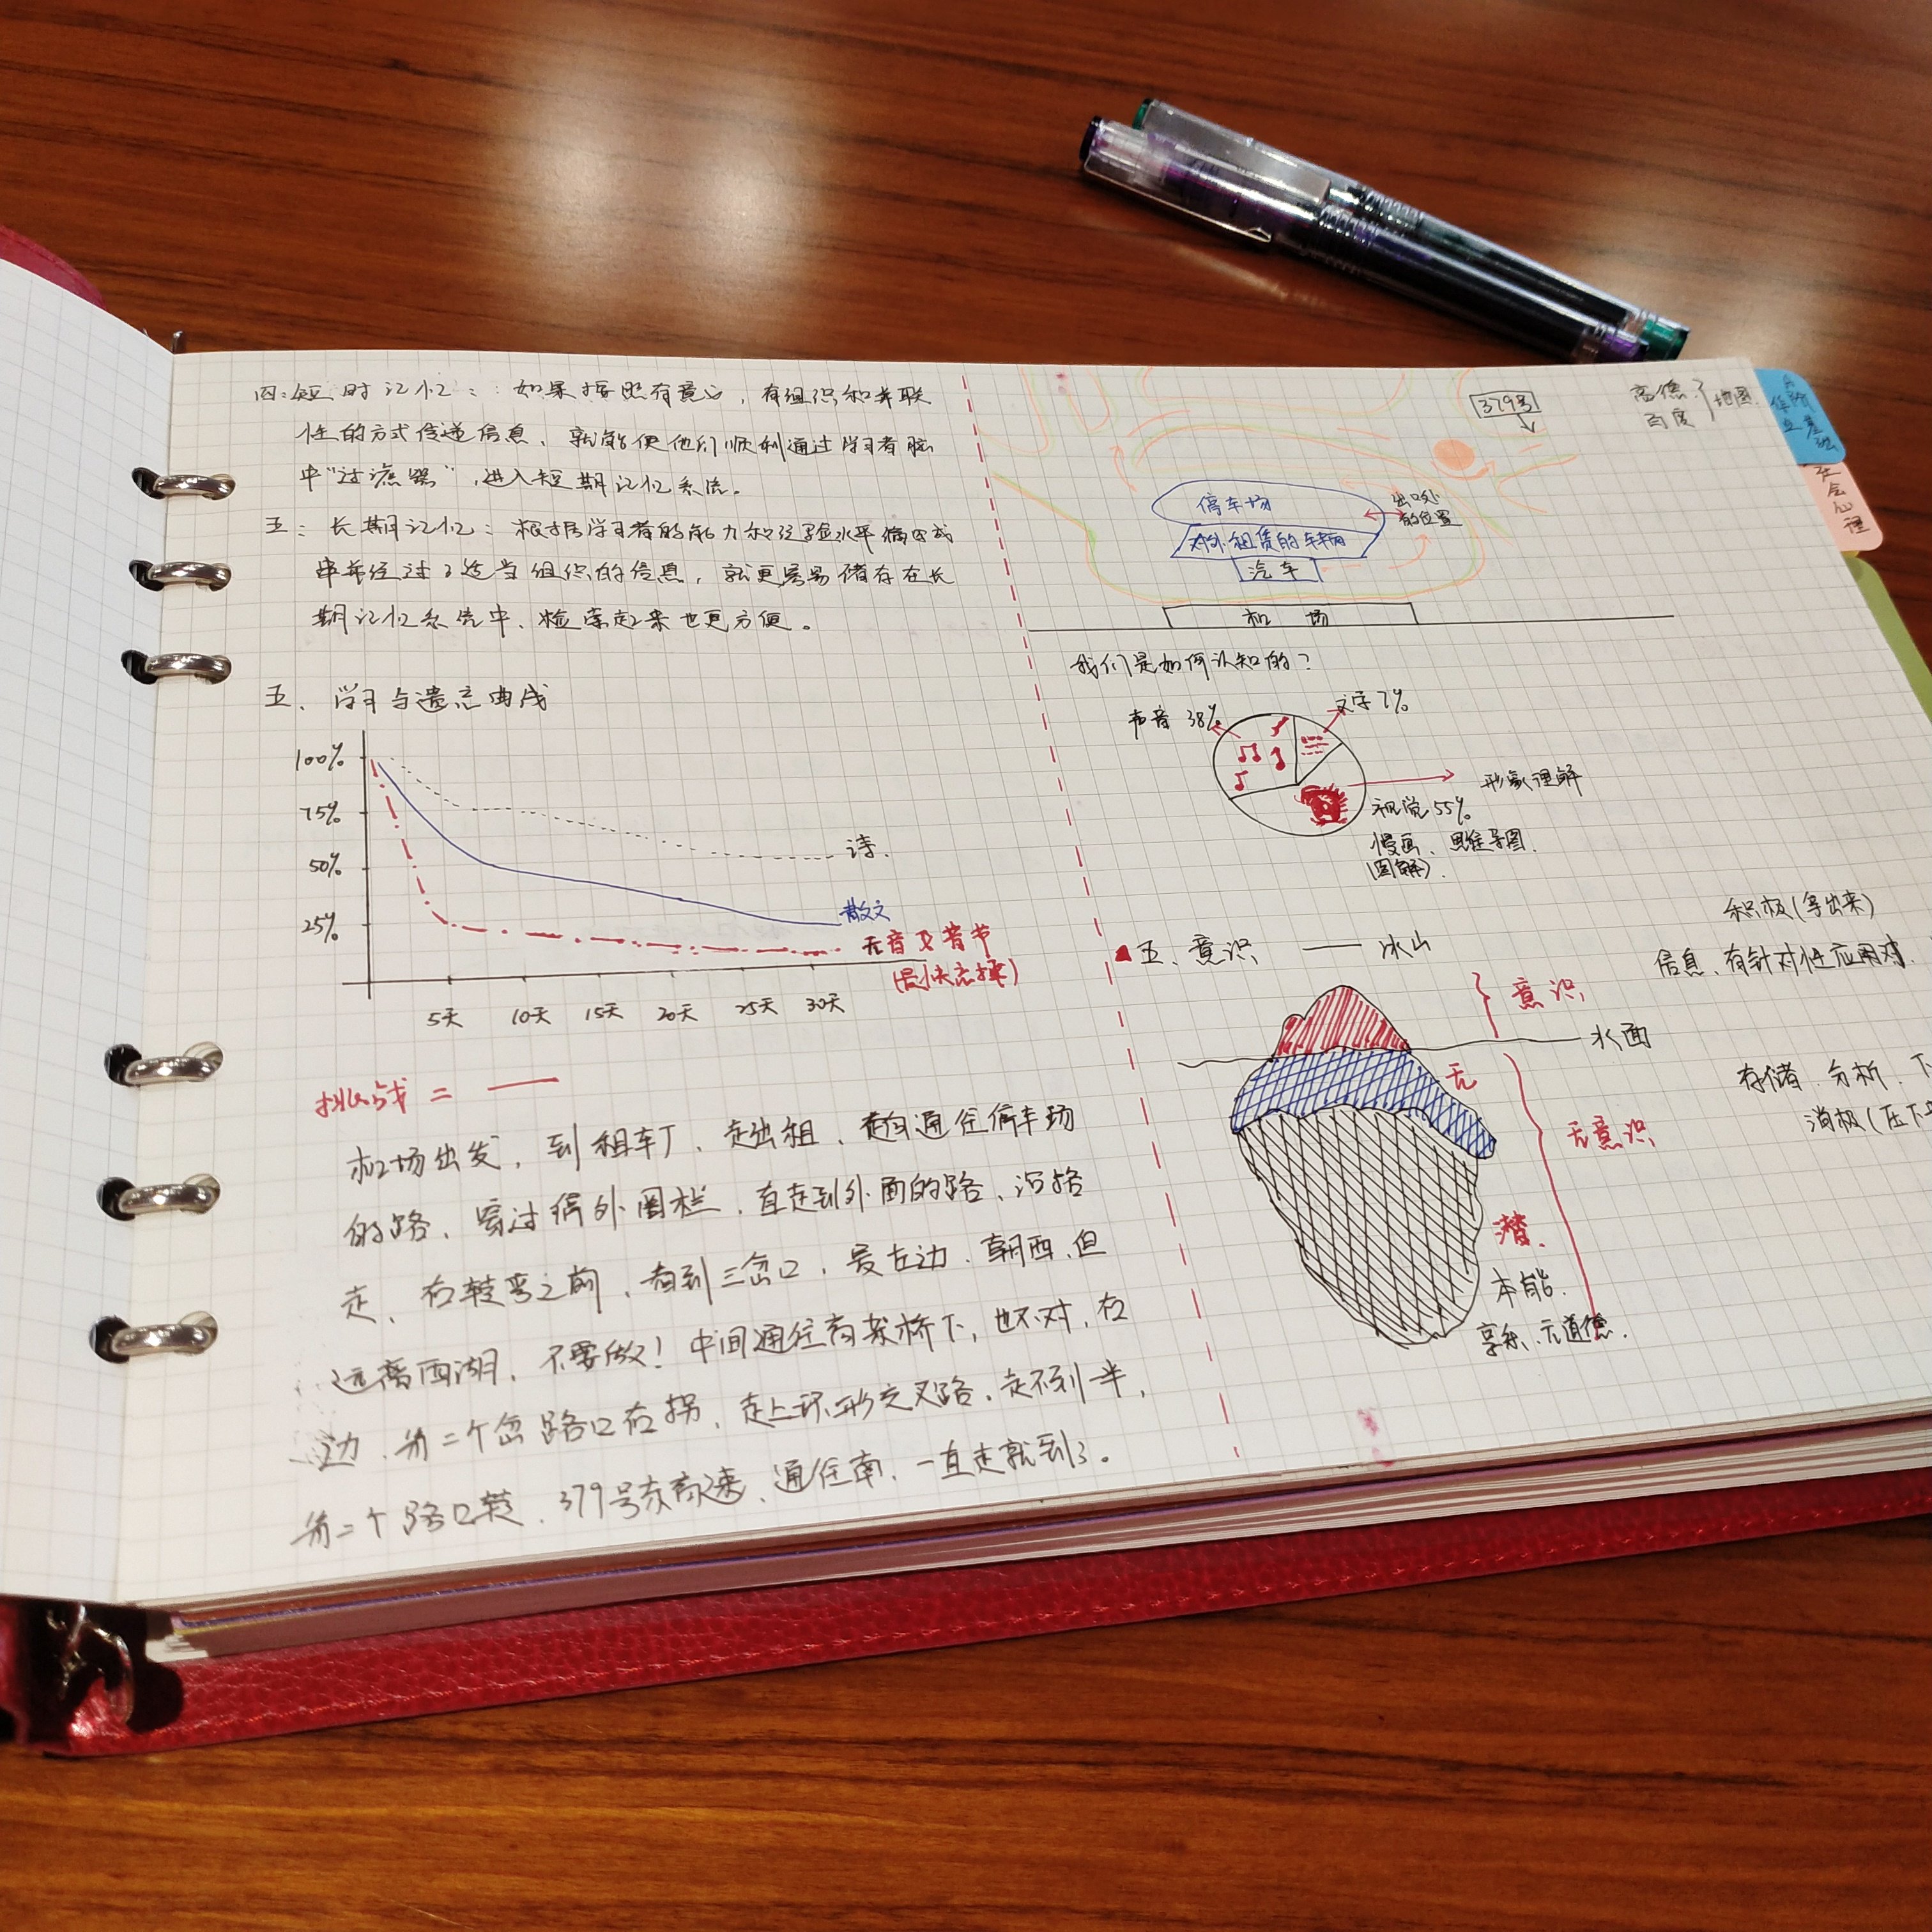 四:短时记忆:如果按照有意义,有组织和串联
性的方式传递信息、就能使他们顺利通过学习者脑
中"过滤器",进入短期记忆系统。
五:长期记忆:根据学习者的能力和经验水平编内或
串并经过了适当组织的信息,就更容易储存在长
期记忆系统中、检索起来也更方便。
五、学习与遗忘曲线
100%
75%
50%
25%
诗.
散文
无音及音节
5天 10天 15天 20天 25天 30天
挑战=一
机场出发,到租车厂、走出租、走向通往停车场
的路、穿过停外围栏、直走到外面的路、沿路
走、右转弯之前、看到三岔口,最左边、朝西、但
远离西湖、不要做!中间通往高架桥下,也不对,右
边、第二个岔路口右拐、走上环形交叉路、走不到一半,
第二个路口转、379号东高速、通往南、一直走就到了。
379号
高德
百度
地图
停车场
出口处
的位置
对外租赁的车辆
汽车
机场
我们是如何认知的?
声音 38%
文字 7%
形象理解
视觉 55%
慢画、思维导图.
(图解).
五、意识 —— 冰山
意识
水面
无
无意识
潜.
本能.
享乐、无道德.
积极(拿出来)
信息、有针对性应用对
存储、分析、下
消极(压下
社会心理